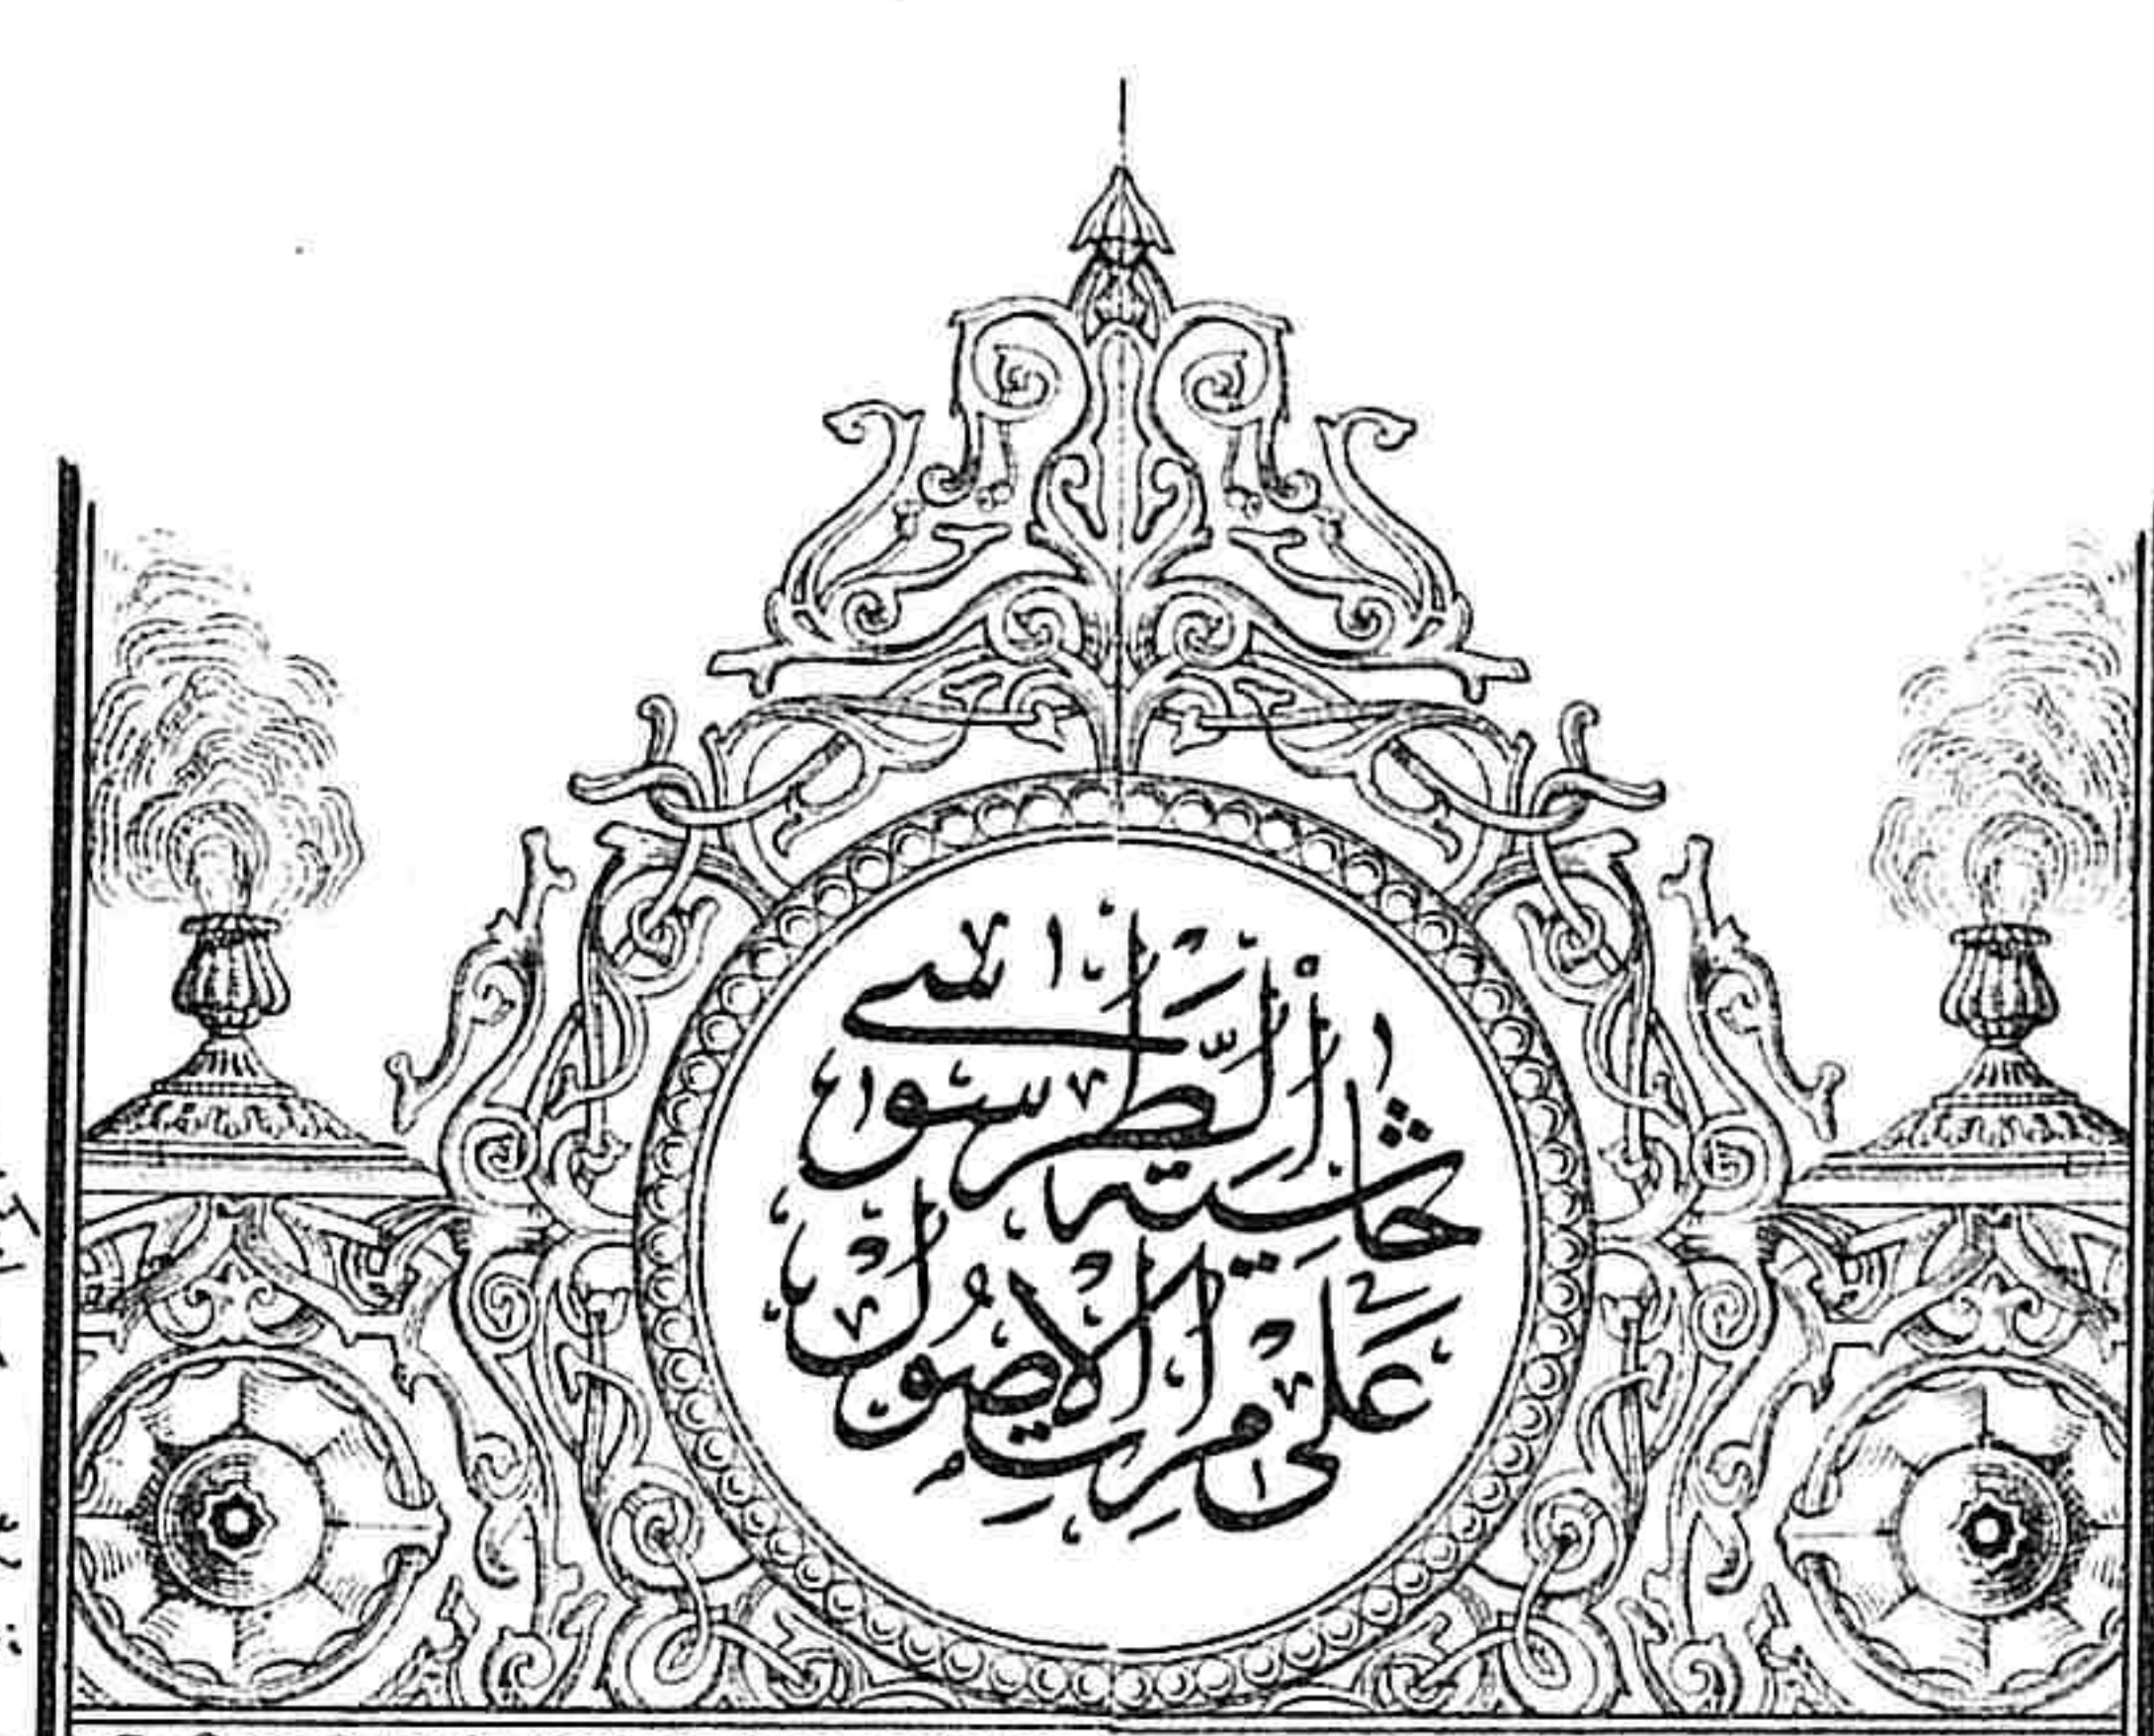 حاشية الطرسوسى
على مرآت الاصول